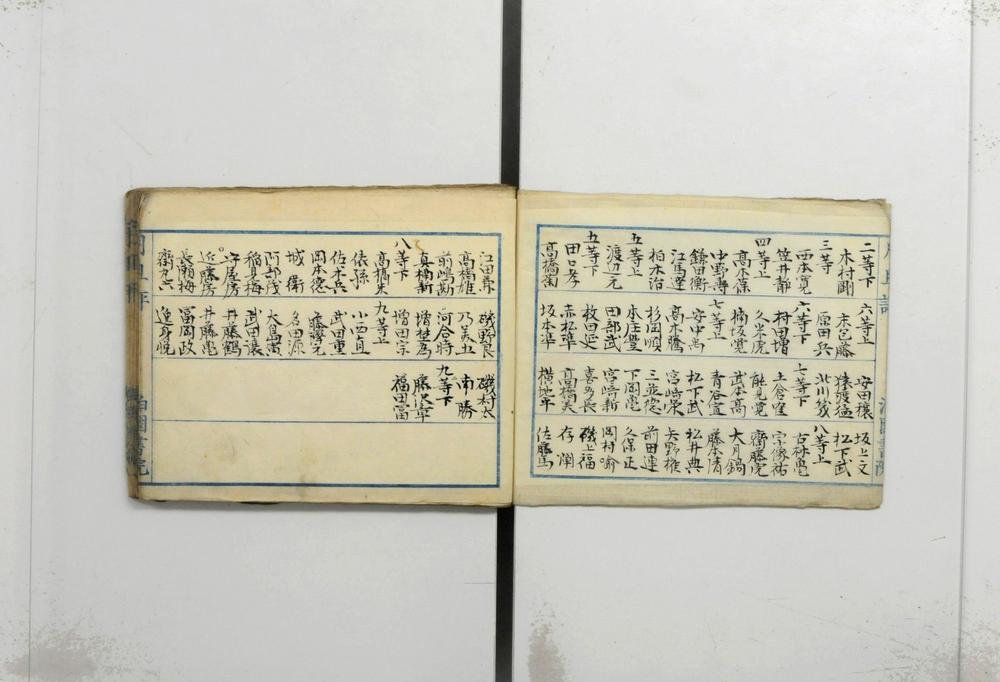 月旦評
二等下
木村剛
三等
西本寛
笠井静
四等上
高木保
中野壽
鎌田衡
江馬聖
柏木治
五等上
渡辺元
五等下
田口孝
高橋菊
六等上
末包藤
原田兵
六等下
村田増
久米虎
楠坂寛
七等上
安中萬
高木騰
杉岡順
本庄豊
田部武
牧田延
赤松準
坂本準
安田穣
猿渡猛
北川幾
七等下
上倉窪
能見寛
武本高
青谷宣
松下武
宮崎栄
三並徳
下岡亀
宮崎新
喜多長
高橋美
横地平
坂上文
松下武
八等上
古林亀
宗像祐
齋藤虎
大月鍋
藤本清
松井典
矢野權
前田連
久保正
岡村喩
磯上福
存瀾
佐藤馬
泊園書院
江田彝
高橋雄
前嶋勘
真楠新
八等下
高橋
俵孫
佐木兵
岡本德
城衛
阿部茂
稲見梅
守屋房
近藤房
長瀬梅
齋九六
磯野良
乃美五
河合時
増埜為
増田宗
九等上
小西貞
武田重
齋藤元
名田源
大島寅
武田譲
井藤鶴
井藤亀
冨岡政
進身悦
磯村太
南勝
九等下
藤沢章
福田富
月旦評
泊園書院